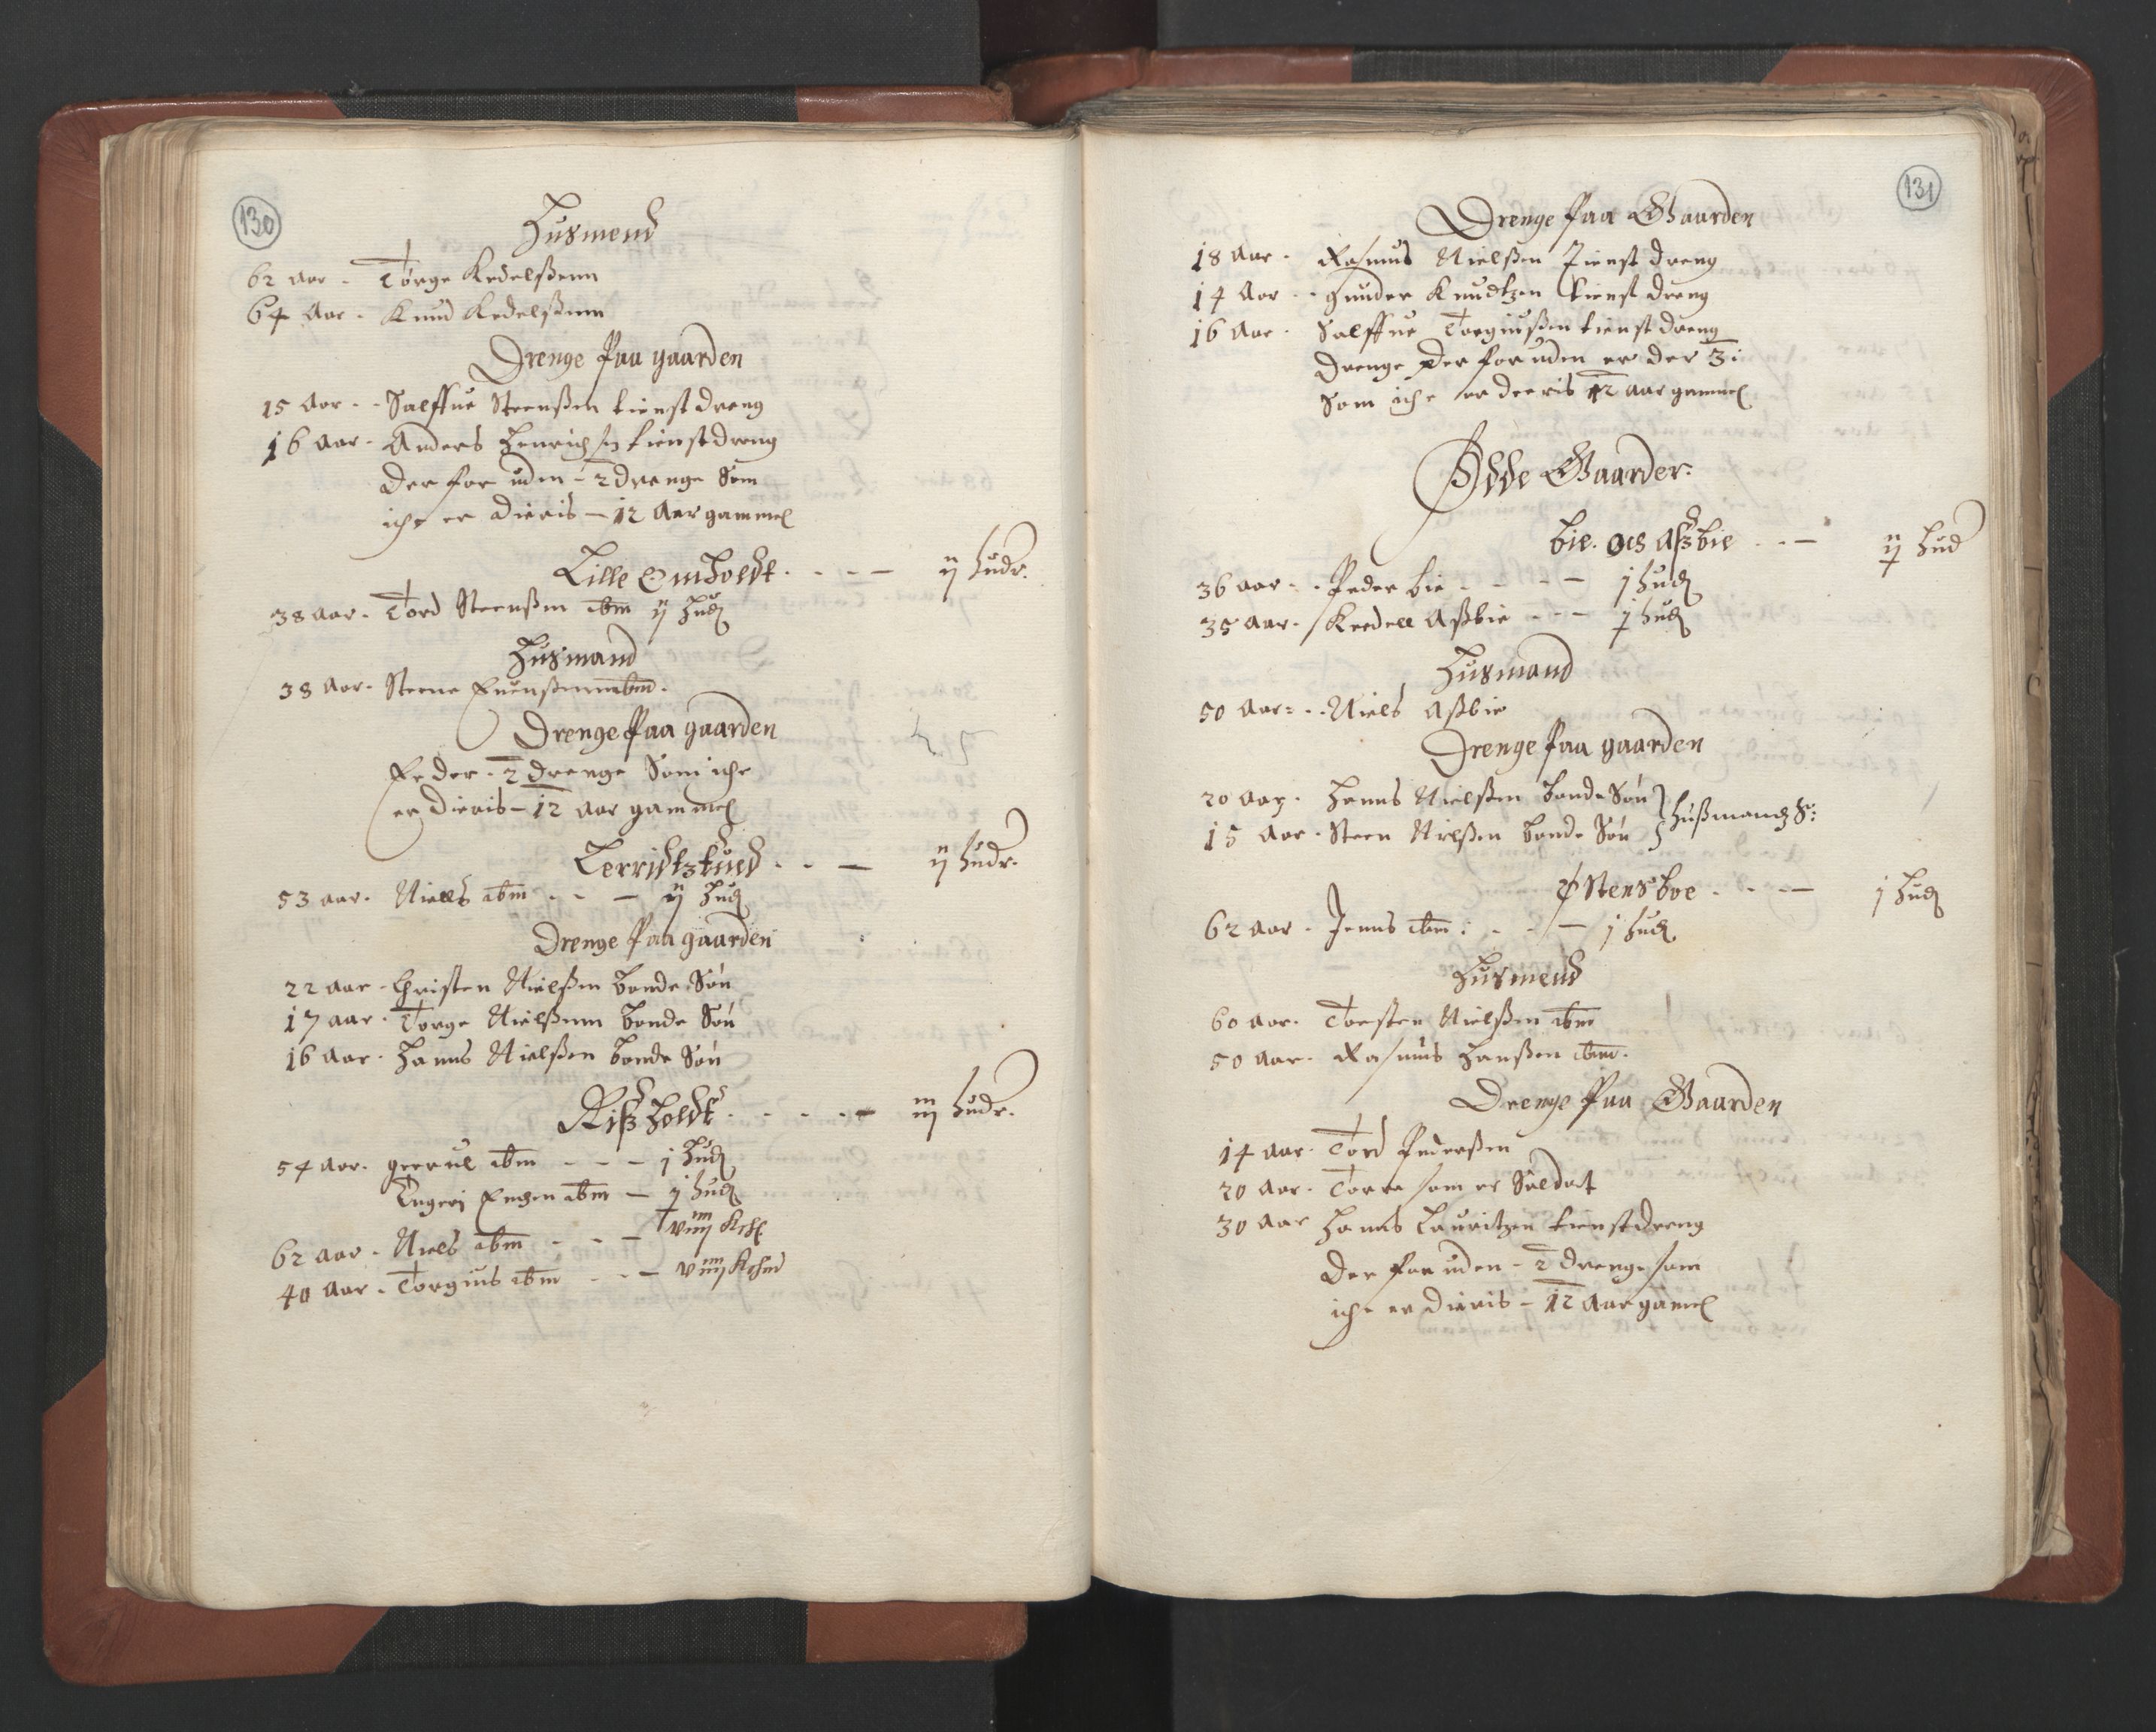 130
Husmend
62 aar - Torge Kedelßenn
64 Aar - Knud Kedelßenn
Drenge Paa gaarden
15 Aar - - Salffue Steenßen tienstdreng
16 aar - Anders Henrichsen tienstdreng
Der foruden - 2 drenge Som
iche er Dieris - 12 Aar gammel
Lille Omholdt - - - - ij hudr.
38 aar - Tord Steenßen ibm ij Hud
Husmand
38 Aar - Steene Euenßenn ibm.
Drenge Paa gaarden
Er der - 2 drenge Som iche
er Dieris - 12 aar gammel
- - - ij hudr.
53 aar - Niells ibm - - - ij Hud
Drenge Paa gaarden
22 aar - Christen Nielßen Bonde Søn
17 aar - Torge Nielßenn Bonde Søn
16 Aar - Hanns Nielßen Bonde Søn
Rißholdt - - - - - iij hudr.
54 aar - ibm - - - j Hud
ibm - j hud
62 aar - Niels ibm - - -
40 Aar - Torgius ibm - - -
131
Drenge Paa Gaarden
18 Aar - Rasmus Nielßen Tienst dreng
14 Aar - - Gunder Knudtzen tienst dreng
16 Aar - Salffue Torgiußen tienst dreng
Drenge Der foruden er der 3
Som iche er deeris 12 aar gammel
Ødde Gaarder.
bie. ocs Aßbie - - - ij hud
36 aar - - Peder bie - - - - j hud
35 aar - Keedell Aßbie - - - j hud
Husmand
50 Aar - - Niels Aßbie
Drenge Paa gaarden
20 aar - Hanns Nielßen Bonde Søn
15 Aar - Steen Nielßen Bonde Søn Hußmandz S:
Østensboe - - - j Hud
62 aar - Jenns ibm: - - - j hud
Husmend
60 aar - Torsten Nielßen ibm
50 Aar - Rasmus Hanßen ibm.
Drenge Paa Gaarden
14 aar - Tord Pederßen
20 Aar - Torre som er Soldat
30 Aar Hanns Lauritzen tienstdreng
Der foruden - 2 drenge som
iche er Dieris - 12 Aar gamel